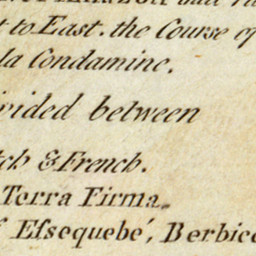 t to East. the Course of
la Condamine.
vided between
tch & French.
Terra Firma.
f Eſsequebé, Berbice